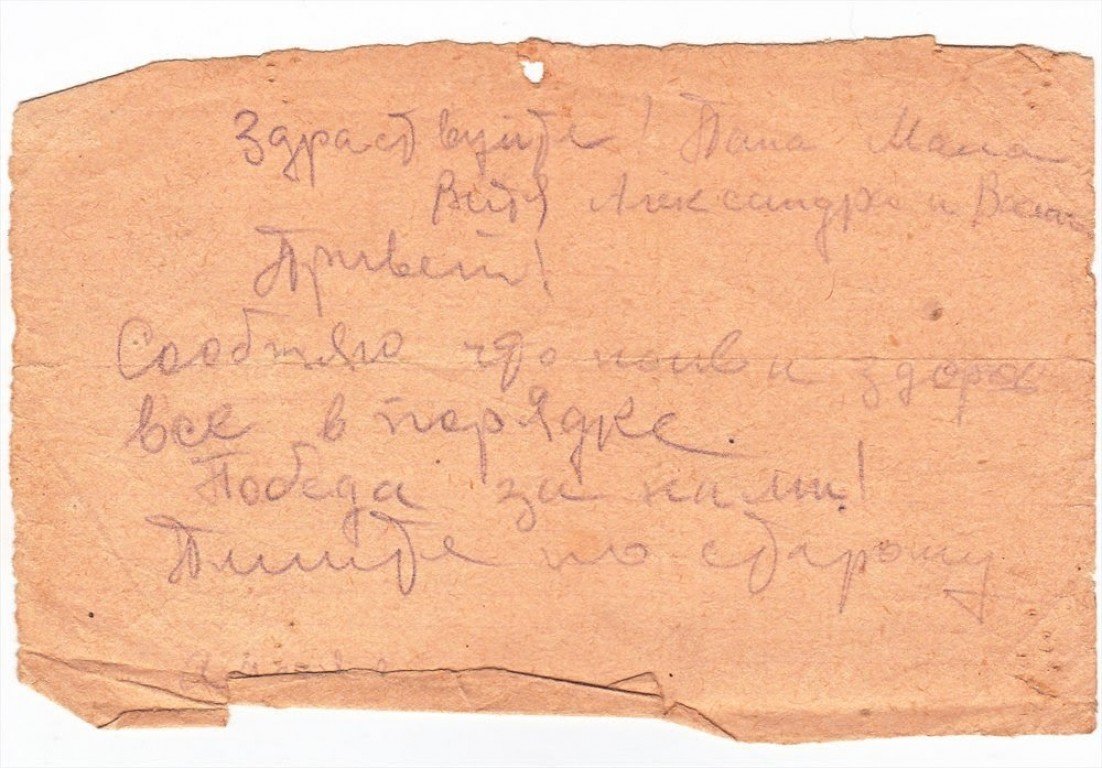 Здраствуйте! Папа Мама
Витя Александра и
Привет!
Сообщяю что жив и здоров
все в порядке.
Победа за нами!
Пишите по старому